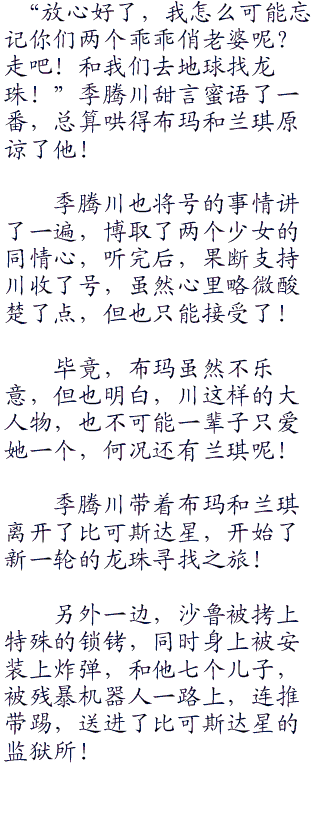 “放心好了，我怎么可能忘
记你们两个乖乖俏老婆呢？
走吧！和我们去地球找龙
珠！”季腾川甜言蜜语了一
番，总算哄得布玛和兰琪原
谅了他！
季腾川也将号的事情讲
了一遍，博取了两个少女的
同情心，听完后，果断支持
川收了号，虽然心里略微酸
楚了点，但也只能接受了！
毕竟，布玛虽然不乐
意，但也明白，川这样的大
人物，也不可能一辈子只爱
她一个，何况还有兰琪呢！
季腾川带着布玛和兰琪
离开了比可斯达星，开始了
新一轮的龙珠寻找之旅！
另外一边，沙鲁被拷上
特殊的锁铐，同时身上被安
装上炸弹，和他七个儿子，
被残暴机器人一路上，连推
带踢，送进了比可斯达星的
监狱所！